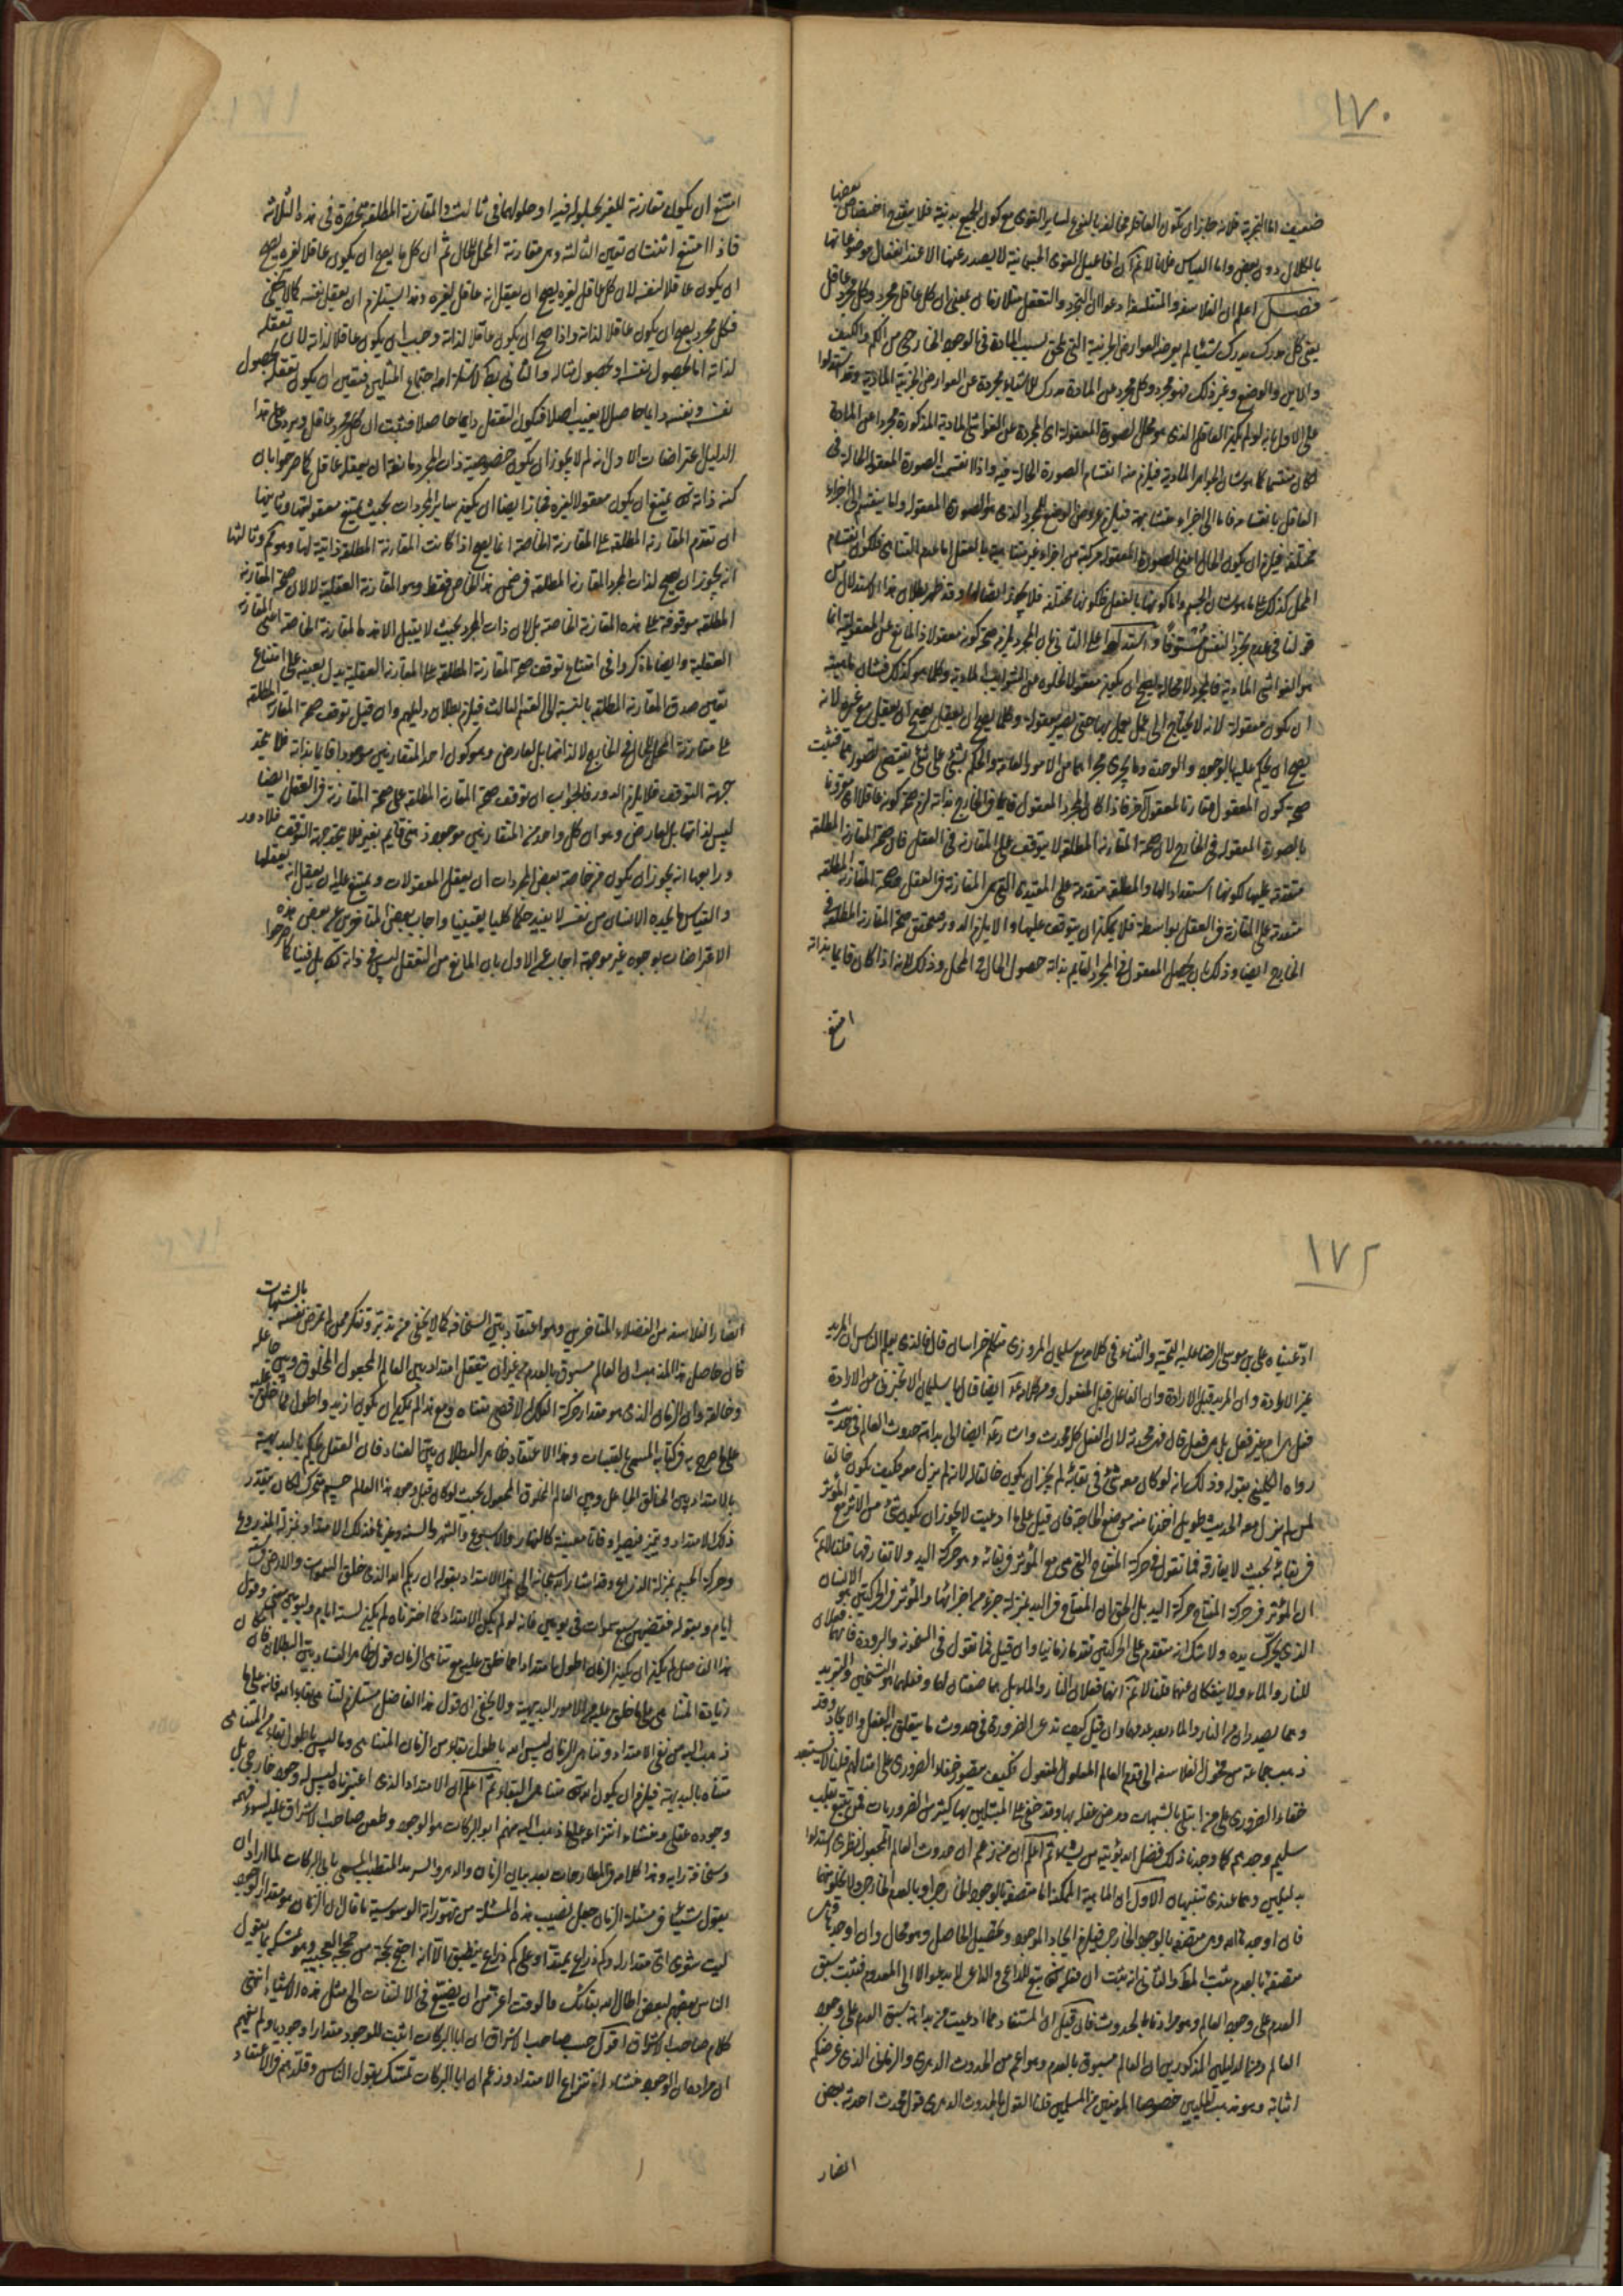 ١٧٠
ضعيف اما التجربة فلانه جاز ان تكون العاقلة مخالفة بالنوع لساير القوى مع كون الجميع بدنية فلا يقتضي اختصاص بعضها
بالكلال دون بعض واما القياس فلانا لا نم ان افاعيل القوى الجسمانية لا يصدر عنها الا عند انفعال موضوعاتها
فصل اعلم ان الفلاسفة والمتفلسفة ادعوا ان التجرد والتعقل متلازمان بمعنى ان كل عاقل مجرد وكل مجرد عاقل
يعني كل مدرك يدرك شيئا لم يعرضه العوارض الجزئية التي تلحق بسبب المادة في الوجود الخارجي من الكم والكيف
والاين والوضع وغير ذلك فهو مجرد وكل مجرد عن المادة مدرك للاشياء مجردة عن العوارض الجزئية المادية وقد استدلوا
على الاول بانه لو لم يكن العاقل الذي هو محل الصورة المعقولة اى المجردة عن الغواشى المادية المذكورة مجردا عن المادة
لكان منقسما كما هو شان الجواهر المادية فيلزم منه انقسام الصورة الحالة فيه واذا انقسمت الصورة المعقولة الحالة في
العاقل بانقسامه فاما الى اجزاء متشابهة فيلزم عروض الوضع للمجرد الذى هو الصورة المعقولة واما ينقسم الى اجزاء
مختلفة فيلزم ان يكون الحال اعنى الصورة المعقولة مركبة من اجزاء غير متناهية بالفعل اما عدم التناهى فلكون انقسام
المحل كذلك على ما هو شان الجسم واما كونها بالفعل فلكونها مختلفة فلا يجوز اتصالها وقد ظهر بطلان هذا الاستدلال من
قولنا في عدم تجرد النفس مستوفى واستدلوا على الثاني بان المجرد يلزمه صحة كونه معقولا اذ المانع عن المعقولية انما
هو الغواشى المادية فالمجرد لا محالة يصح ان يكون معقولا لخلوه عن الشوايب المادية وكلما هو كذلك فشان ماهيته
ان يكون معقولة لانه لا يحتاج الى عمل يعمل بها حتى يصير معقولة وكلما يصح ان يعقل يصح ان يعقل مع غيره لانه
يصح ان يحكم عليها بالوجود والوحدة وما يجرى مجراهما من الامور العامة والحكم بشئ على شئ يقتضي تصورهما فتثبت
صحة كون المعقول مقارنا لمعقول آخر فاذا كان المجرد المعقول قايما في الخارج بذاته لزم صحة كونه عاقلا اى مقرونا
بالصورة المعقولة في الخارج لان صحة المقارنة المطلقة لا يتوقف على المقارنة في العقل فان صحة المقارنة المطلقة
متقدمة عليها لكونها استعدادا لها والمطلقة متقدمة على المقيدة التى هى المقارنة في العقل فصحة المقارنة المطلقة
متقدمة على المقارنة في العقل بواسطة فلا يمكن ان يتوقف عليها والا يلزم الدور فيتحقق صحة المقارنة المطلقة في
الخارج ايضا وذلك بان يحصل المعقول في المجرد القايم بذاته حصول الحال في المحل وذلك لانه اذا كان قايما بذاته
امتنع
امتنع ان يكون مقارنة للغير بحلوله فيه او حلولهما في ثالث والمقارنة المطلقة منحصرة في هذه الثلاثة
فاذا امتنع اثنتان تعين الثالثة وهى مقارنة المحل للحال ثم ان كل ما يصح ان يكون عاقلا لغيره يصح
ان يكون عاقلا لنفسه لان كل عاقل لغيره يصح ان يعقل انه عاقل لغيره وهذا يستلزم ان يعقل نفسه كما لا يخفى
فكل مجرد يصح ان يكون عاقلا لذاته واذا صح ان يكون عاقلا لذاته وجب ان يكون عاقلا لذاته لان تعقله
لذاته اما بحصول نفسه او بحصول مثاله والثاني بط لاستلزامه اجتماع المثلين فيتعين ان يكون تعقله بحصول
نفسه ونفسه دايما حاصل لا يغيب اصلا فيكون التعقل دايما حاصلا فثبت ان كل مجرد عاقل ويرد على هذا
الدليل اعتراضات الاول انه لم لا يجوز ان يكون خصوصية ذات المجرد مانعة ان يعقله عاقل كما صرحوا بان
كنه ذاته تع يمتنع ان يكون معقولا لغيره فجاز ايضا ان يكون ساير المجردات بحيث يمتنع معقوليتها وثانيها
ان تقدم المقارنة المطلقة على المقارنة الخاصة انما يصح اذا كانت المقارنة المطلقة ذاتية لها وهو مم وثالثها
انه يجوز ان يصح لذات المجرد المقارنة المطلقة في ضمن هذا الخاص فقط وهو المقارنة العقلية لا لان صحة المقارنة
المطلقة موقوفة على هذه المقارنة الخاصة بل لان ذات المجرد بحيث لا يقبل الا هذه المقارنة الخاصة اعنى المقارنة
العقلية وايضا ما ذكروا في امتناع توقف صحة المقارنة المطلقة على المقارنة العقلية يدل بعينه على امتناع
تعين صدق المقارنة المطلقة بالنسبة الى القسم الثالث فيلزم بطلان دليلهم وان قيل توقف صحة المقارنة المطلقة
على مقارنة المحل للحال في الخارج لا لذاتها بل لعارض وهو كون احد المتقارنين موجودا قايما بذاته فلا يتحد
جهة التوقف فلا يلزم الدور فالجواب ان توقف صحة المقارنة المطلقة على صحة المقارنة في العقل ايضا
ليس لذاتها بل لعارض وهو ان كل واحد من المتقارنين موجود ذهنى قايم بغيره فلا يتحد جهة التوقف فلا دور
ورابعها انه يجوز ان يكون من خاصة بعض المجردات ان يعقل المعقولات ويمتنع عليه ان يعقل انه يعقلها
والقياس بما يجده الانسان من نفسه لا يفيد حكما كليا يقينيا واجاب بعض المتاخرين عن بعض هذه
الاعتراضات بوجوه غير موجهة اجاب عن الاول بان المانع من التعقل ليس في ذاته تع بل فينا كما صرحوا
١٧٢
ادعيناه على بن موسى الرضا عليه التحية والثناء في كلامه مع سليمان المروزى متكلم خراسان قال فالذى يعلم الناس ان المريد
غير الارادة وان المريد قبل الارادة وان الفاعل قبل المفعول ومن كلامه ايضا قال يا سليمان الا تخبرنى عن الارادة
فعل هى ام غير فعل بل هى فعل قال فهى محدثة لان الفعل كله محدث واشار ايضا الى بداهة حدوث العالم في حديث
رواه الكلينى بقوله وذلك انه لو كان معه شئ في بقائه لم يجز ان يكون خالقا له لانه لم يزل معه فكيف يكون خالقا
لمن لم يزل معه الحديث طويل اخذنا منه موضع الحاجة فان قيل على ما ادعيت لا يجوز ان يكون شئ من الاثر مع المؤثر
في بقائه بحيث لا يفارقه فما تقول في حركة المفتاح التى هى مع المؤثر في بقائه وهو حركة اليد ولا تفارقها قلنا لا نم
ان المؤثر في حركة المفتاح حركة اليد بل الحق ان المفتاح في اليد بمنزلة جزء من اجزائها والمؤثر في الحركتين هو الانسان
الذى يحرك يده ولا شك انه متقدم على الحركتين تقدما زمانيا وان قيل فما تقول في السخونة والبرودة فانهما فعلان
للنار والماء ولا ينفكان عنهما قلنا لا نم انهما فعلان للنار والماء بل هما صفتان لهما وفعلهما هو التسخين والتبريد
وهما يصدران من النار والماء بعد وجودهما وان قيل كيف تدعى الضرورة في حدوث ما يتعلق به الفعل والايجاد وقد
ذهب جماعة من فحول الفلاسفة الى قدم العالم المعلول المفعول فكيف يتصور خفاء الضرورى على امثالهم قلنا لا نستبعد
خفاء الضرورى على من ابتلى بالشبهات ومرض عقله بها وقد خفى على المبتلين بها كثير من الضروريات فمن تتبع بقلب
سليم وجدهم كما وجدنا ذلك فضل الله يؤتيه من يشاء ثم اعلم ان من زعم ان حدوث العالم المجعول نظرى استدلوا
بدليلين وهما عندى تنبيهان الاول ان الماهية الممكنة اما متصفة بالوجود الخارجى او بالعدم الخارجى ولا يخلو منهما
فان اوجدها الله وهى متصفة بالوجود الخارجى فيلزم ايجاد الموجود وتحصيل الحاصل وهو محال وان اوجدها وهى
متصفة بالعدم ثبت المط والثانى انه يثبت ان فعله تع تبع للداعى والداعى لا يدعو الا الى المعدوم فثبت سبق
العدم على وجود العالم وهو مرادنا بالحدوث فان قيل ان المستفاد مما ادعيت من بداهة سبق العدم على وجود
العالم ومن الدليلين المذكورين ان العالم مسبوق بالعدم وهو اعم من الحدوث الدهرى والزمانى الذى غرضكم
اثباته وهو مذهب المليين خصوصا المؤمنين من المسلمين قلنا القول بالحدوث الدهرى قول محدث احدثه بعض
انصار
انصار الفلاسفة من الفضلاء المتاخرين وهو اعتقاد بين السخافة كما لا يخفى من تدبر وتفكر ممن لم يمرض نفسه بالشبهات
فان حاصل هذا المذهب ان العالم مسبوق بالعدم من غير ان يتعقل امتداد بين العالم المجعول المخلوق وبين جاعله
وخالقه وان الزمان الذى هو مقدار حركة الفلك الاقصى متناه ومع هذا لم يمكن ان يكون ازيد واطول مما خلق عليه
على ما صرح به في كتابه المسمى بالقبسات وهذا الاعتقاد ظاهر البطلان بين الفساد فان العقل يحكم بالبديهة
بالامتداد بين الخالق الجاعل وبين العالم المخلوق المجعول بحيث لو كان قبل وجود هذا العالم جسم متحرك لكان يتقدر
ذلك الامتداد ويتميز فيصير اوقاتا معينة كالنهار والاسبوع والشهر والسنة وغيرها فذلك الامتداد بمنزلة المذروع
وحركة الجسم بمنزلة الذراع وقد اشار الله سبحانه الى هذا الامتداد بقوله ان ربكم الله الذى خلق السموات والارض في ستة
ايام وبقوله فقضيهن سبع سموات في يومين فانه لو لم يكن الامتداد كما اخترناه لم يكن لستة ايام وليومين معنى وقول
هذا الفاضل لم يمكن ان يكون الزمان اطول امتدادا مما خلق عليه مع تناهى الزمان قول ظاهر الفساد بين البطلان فان امكان
زيادة المتناهى على ما خلق عليه من الامور البديهية ولا يخفى ان قول هذا الفاضل مستلزم لتناهى بقاء الله فانه على ما
ذهب اليه من نفى الامتداد وتناهى الزمان ليس الله باطول بقاء من الزمان المتناهى وما ليس باطول بقاء من المتناهى
متناه بالبديهة فيلزم ان يكون الله تع متناهى البقاء ثم اعلم ان الامتداد الذى اعتبرناه ليس له وجود خارجى بل
وجوده عقلى ومنشاء انتزاعه على ما ذهب اليه منهم ابو البركات هو الوجود وطعن صاحب الاشراق عليه لسوء فهمه
وسخافة رايه وهذا كلامه في المطارحات بعد بيان الزمان والدهر والسرمد المتطبب المسمى بابى البركات لما اراد ان
يقول شيئا في مسئلة الزمان جعل نصيب هذه المسئلة من تهوراته الوسوسية ما قال ان الزمان هو مقدار الوجود
ليت شعرى اى مقدار له وكم ذراع بعينه او على كم ذراع ينطبق الا انه احتج بحجة من حججه العجيبة وهو تمسكه بما يقول
الناس بعضهم لبعض اطال الله بقائك فالوقت اعز من ان يضيع في الالتفات الى مثل هذه الاشياء انتهى
كلام صاحب الاشراق اقول حسب صاحب الاشراق ان ابا البركات اثبت للوجود مقدارا وجوديا ولم يفهم
ان مراده ان الوجود منشاء انتزاع الامتداد وزعم ان ابا البركات تمسك بقول الناس وقلدهم في الاعتقاد